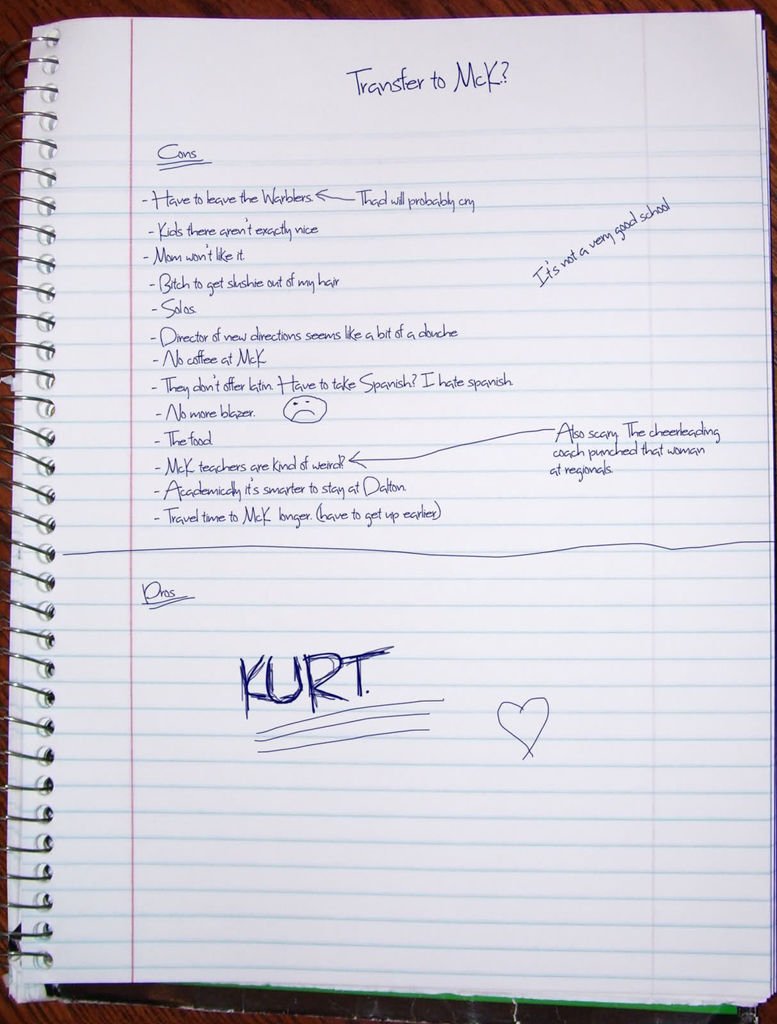 Transfer to McK?
Cons
- Have to leave the Warblers. Thad will probably cry
- Kids there aren't exactly nice
- Mom won't like it.
It's not a very good school
- Bitch to get slushie out of my hair
- Solos.
- Director of new directions seems like a bit of a douche
- No coffee at McK
- They don't offer latin. Have to take Spanish? I hate spanish.
- No more blazer.
- The food
- McK teachers are kind of weird?
Also scary. The cheerleading
coach punched that woman
at regionals.
- Academically it's smarter to stay at Dalton.
- Travel time to McK longer. (have to get up earlier)
Pros
KURT.